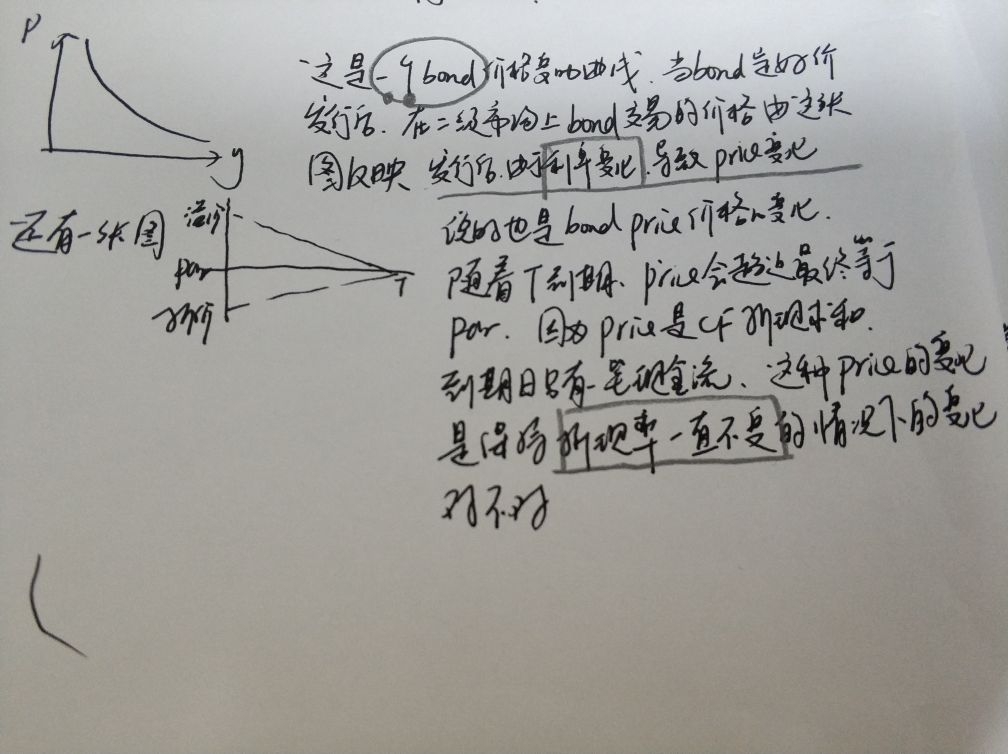 P
y
这是一个bond价格变动曲线. 当bond定好价
发行后. 在二级市场上bond交易的价格由这张
图反映 发行后.由于利率变化.导致price变化
还有一张图
溢价
par
折价
T
说的也是bond price价格的变化.
随着T到期. price会趋近最终等于
par. 因为price是CF折现求和.
到期日只有一笔现金流. 这种price的变化
是保持折现率一直不变的情况下的变化
对不对